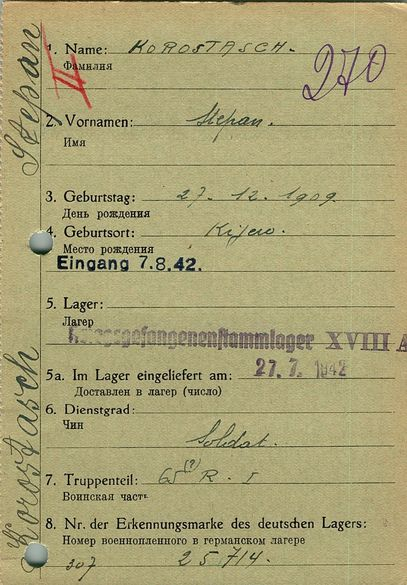 Korostasch Stepan
II
1. Name: KOROSTASCH.
Фамилия
270
2. Vornamen: Stepan.
Имя
3. Geburtstag: 27. 12. 1909.
День рождения
4. Geburtsort: Kijew.
Место рождения
Eingang 7.8.42.
5. Lager:
Лагер
Kriegsgefangenenstammlager XVIII A
5a. Im Lager eingeliefert am: 27. 7. 1942
Доставлен в лагер (число)
6. Dienstgrad:
Чин
Soldat.
7. Truppenteil: (?) R. I
Воинская часть
8. Nr. der Erkennungsmarke des deutschen Lagers:
Номер военнопленного в германском лагере
307 25714.